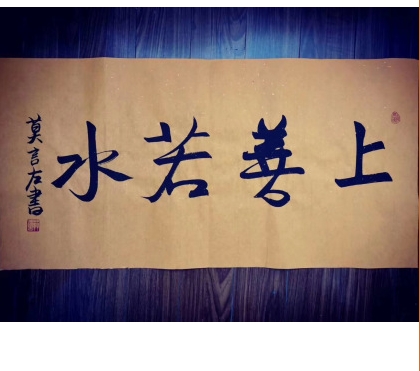 上善若水
莫言左書